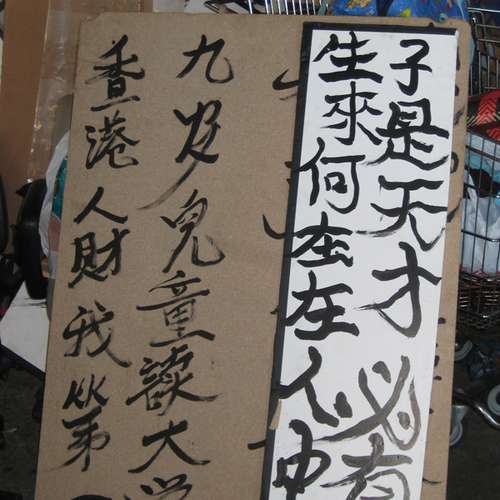 子是天才必有
生來何在在人中
九岁兒童讀大学
香港人財我第